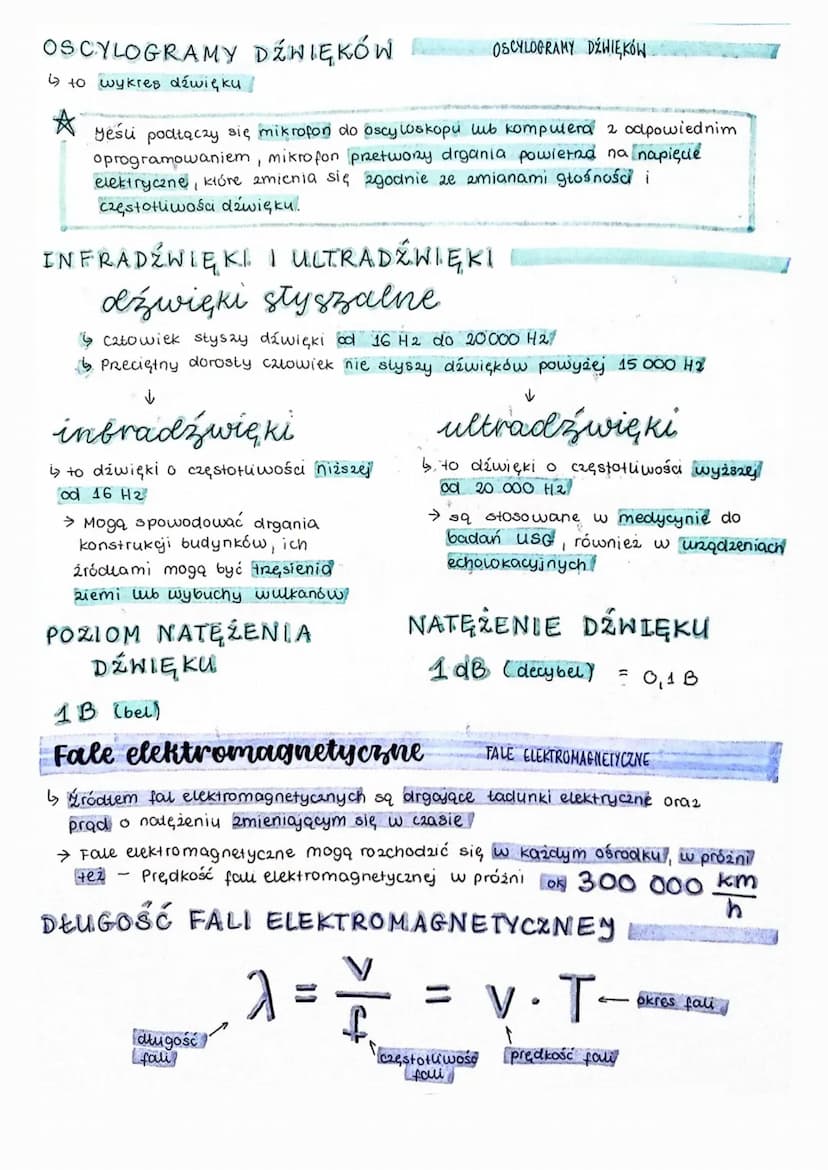 OSCYLOGRAMY DŹWIĘKÓW OSCYLOGRAMY DŹWIĘKÓW
↳ to wykres dźwięku
☆ Jeśli podłączy się mikrofon do oscyloskopu lub komputera z odpowiednim
oprogramowaniem, mikrofon przetworzy drgania powietrza na napięcie
elektryczne, które zmienia się zgodnie ze zmianami głośności i
częstotliwości dźwięku.
INFRADŹWIĘKI I ULTRADŹWIĘKI
dźwięki słyszalne
↳ Człowiek słyszy dźwięki od 16 Hz do 20 000 Hz
↳ Przeciętny dorosły człowiek nie słyszy dźwięków powyżej 15 000 Hz
↓ ↓
infradźwięki
↳ to dźwięki o częstotliwości niższej
od 16 Hz
→ Mogą spowodować drgania
konstrukcji budynków, ich
źródłami mogą być trzęsienia
ziemi lub wybuchy wulkanów
ultradźwięki
↳ to dźwięki o częstotliwości wyższej
od 20 000 Hz
→ są stosowane w medycynie do
badań USG, również w urządzeniach
echolokacyjnych
POZIOM NATĘŻENIA
DŹWIĘKU
1 B (bel)
NATĘŻENIE DŹWIĘKU
1 dB (decybel) = 0,1 B
Fale elektromagnetyczne FALE ELEKTROMAGNETYCZNE
↳ Źródłem fal elektromagnetycznych są drgające ładunki elektryczne oraz
prąd o natężeniu zmieniającym się w czasie
→ Fale elektromagnetyczne mogą rozchodzić się w każdym ośrodku, w próżni
też – Prędkość fali elektromagnetycznej w próżni ok 300 000 km/h
DŁUGOŚĆ FALI ELEKTROMAGNETYCZNEJ
λ = v/f = v · T ← okres fali
długość
fali
częstotliwość
fali
prędkość fali